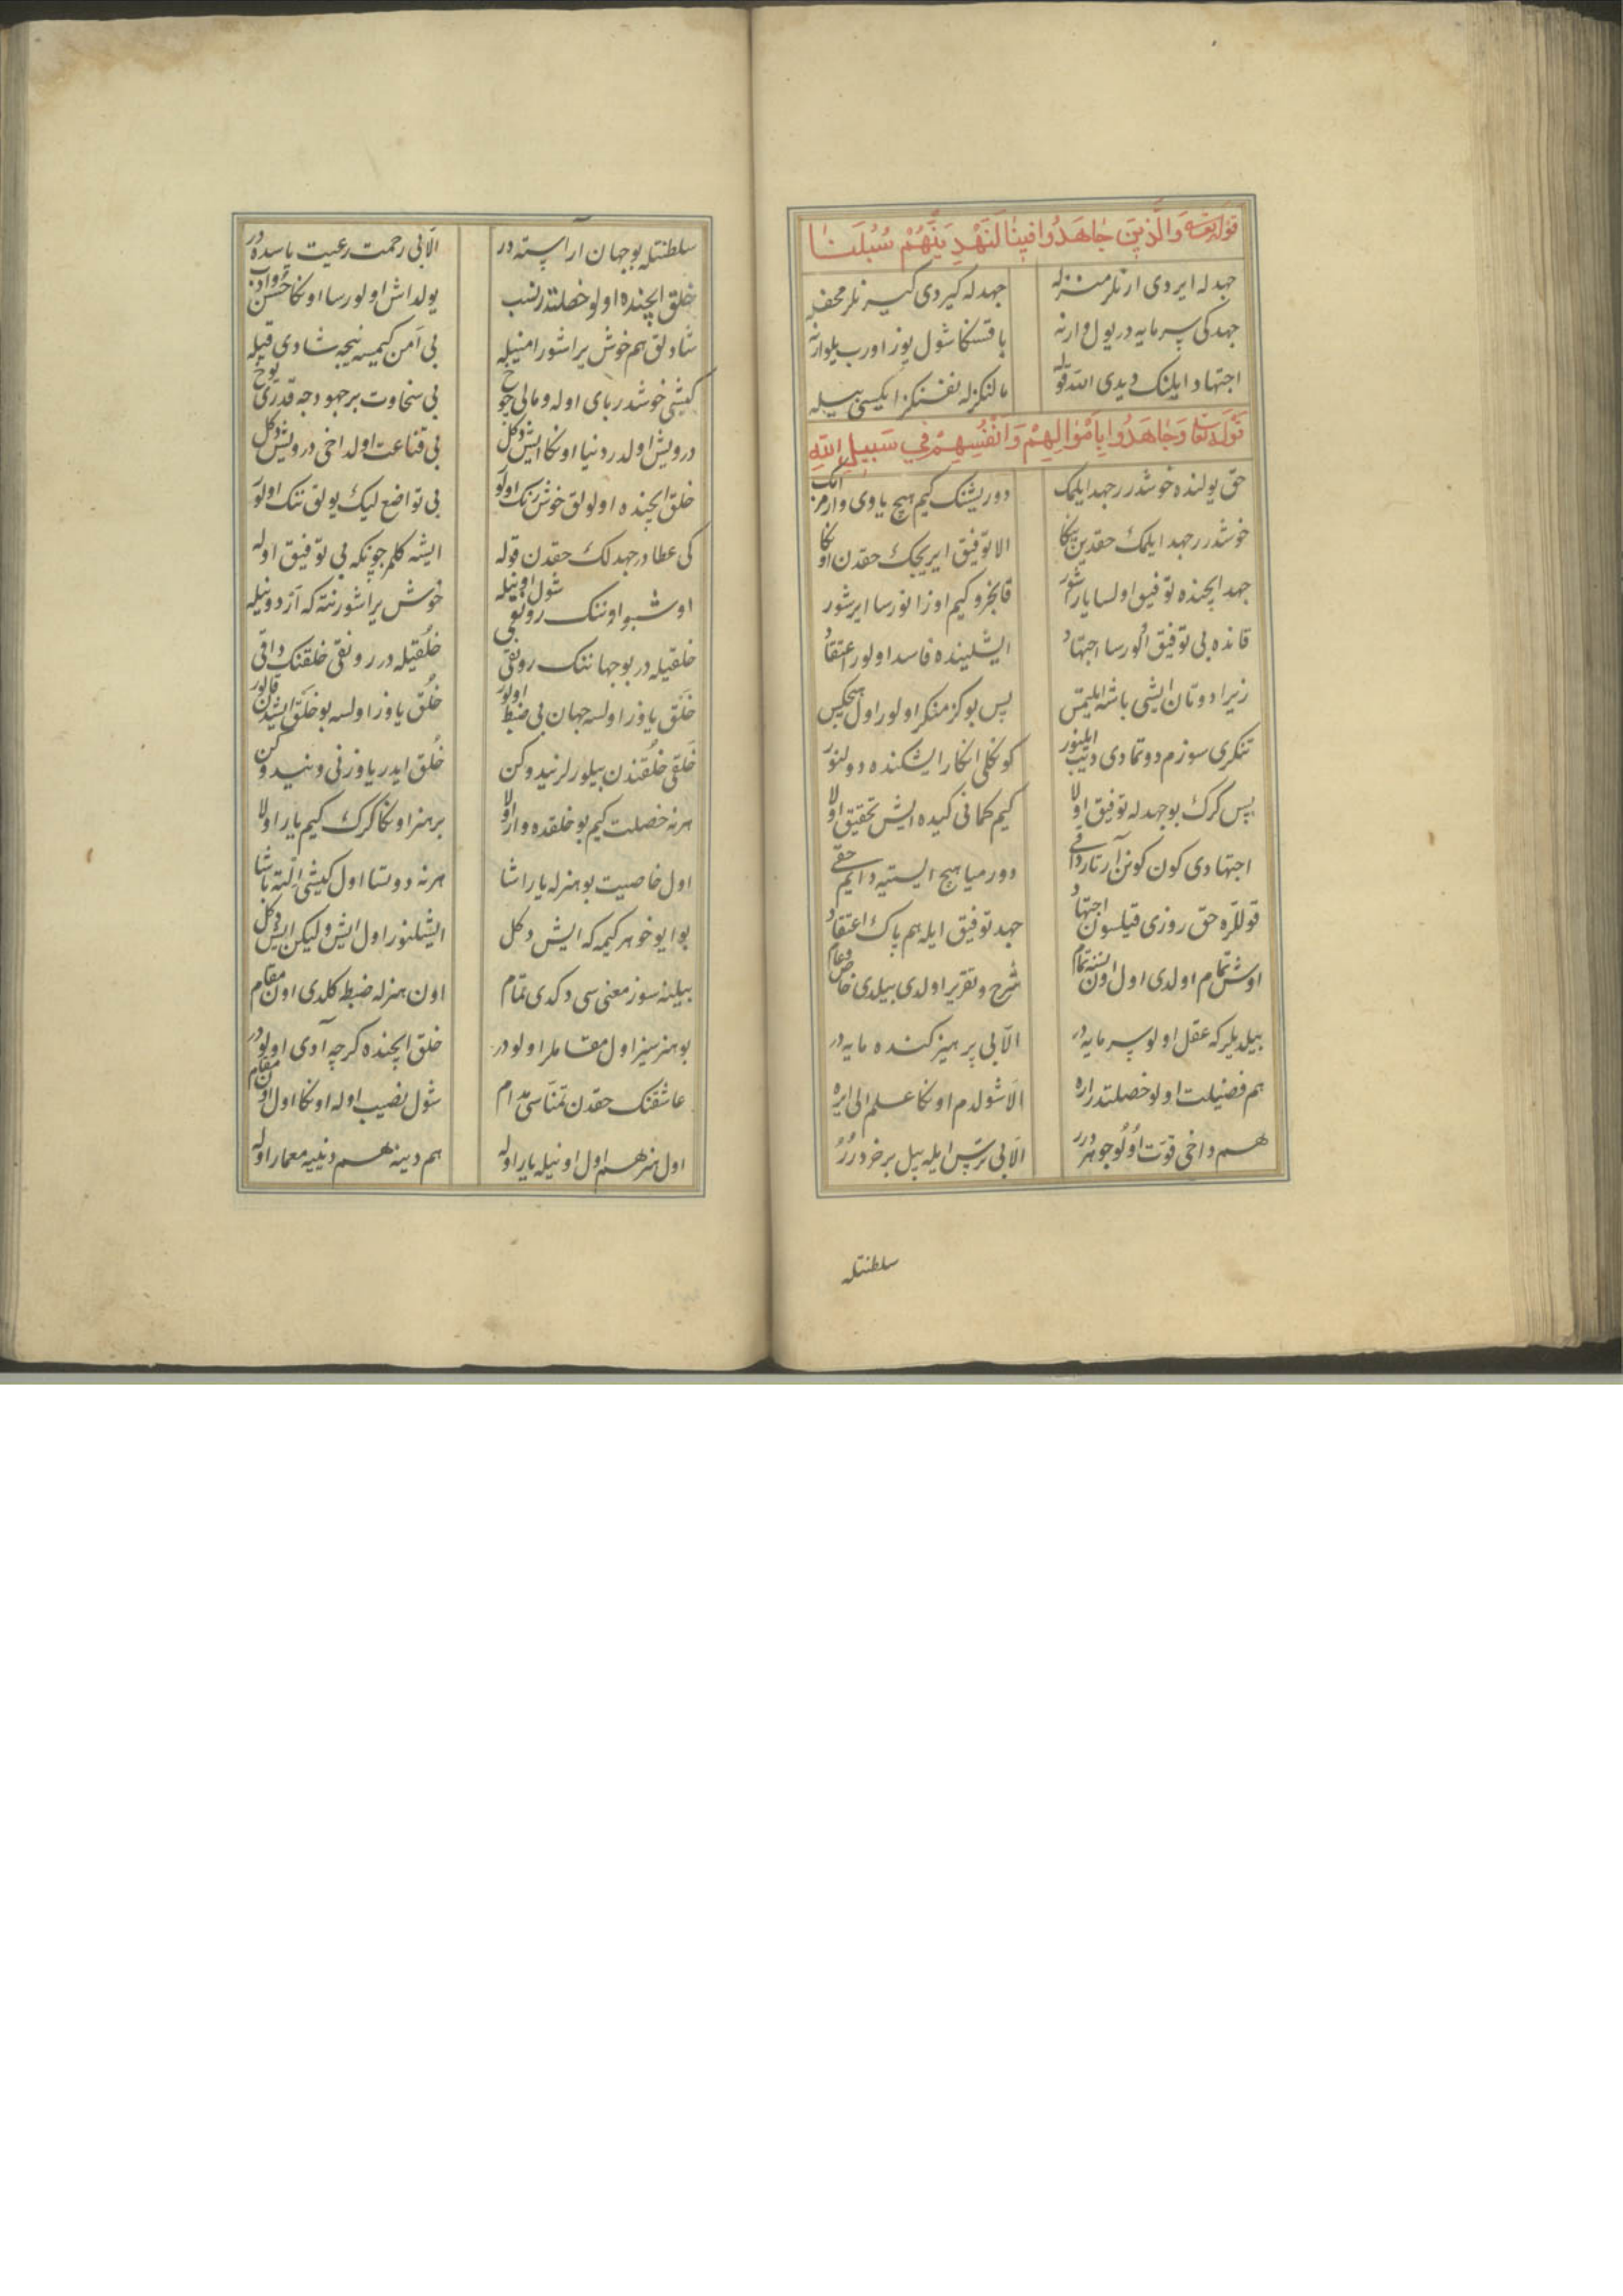 قوله تعالى وَالَّذِينَ جَاهَدُوا فِينَا لَنَهْدِيَنَّهُمْ سُبُلَنَا
جهدله ایردی ارنلر منزله جهدله کیردی کیرنلر محفله
جهد کی سرمایه در یول وارنه باقسکا شول یوز اورب یلوارنه
اجتهاد ایلنک دیدی الله قوله مالنکزله نفسنکز ایکسی بیله
قوله تعالى وَجَاهَدُوا بِأَمْوَالِهِمْ وَأَنْفُسِهِمْ فِي سَبِيلِ اللّٰهِ
حق یولنده خوشدرر جهد ایلمک دوریشنک کیم هیچ یاوی وارمز امک
خوشدرر جهد ایلمک حقدین یکا الا توفیق ایریجک حقدن اوکا
جهد ایچنده توفیق اولسا یارشور قانجرو کیم اوزانورسا ایرشور
قانده بی توفیق الورسا اجتهاد ایشلینده فاسد اولور اعتقاد
زیرا دوتان ایشی باشه ایلتمس پس بوکز منکر اولور اول هیچکس
تنکری سوزم دوتمادی دیب ایلنور کونکلی انکار ایشکنده دولنور
پس کرک بو جهدله توفیق اولا کیم کمانی کیده ایش تحقیق اولا
اجتهادی کون کونن آرتار داقی دورمیا هیچ ایستیه دایم حقی
قوللره حق روزی قیلسون اجتهاد جهد توفیق ایله هم پاک اعتقاد
اوش تمام اولدی اول اون نسنه تمام شرح و تقریر اولدی بیلدی خاص و عام
بیلدیلر که عقل اولو سرمایه در الا بی پرهیز کنده مایه در
هم فضیلت اولو خصلتدر اره الا شولدم اونکا علم الی ایره
هم داخی قوت اولو جوهردرر الا بی ترس ایله بیل بر خردرر
سلطنتله
سلطنتله بو جهان اراسته در الا بی رحمت رعیت یاسده در
خلق ایچنده اولو خصلتدر نسب یولداش اولورسا اونکا حسن و ادب
شادلق هم خوش یراشور امنیله بی امن کیمسه نیجه شادی قیله
کیشی خوشدر بای اوله و مالی چوخ بی سخاوت بر جهودجه قدری یوخ
درویش اولدر دنیا اونکا ایش دکل بی قناعت اول داخی درویش دکل
خلق ایچنده اولولق خوش رنک اولو بی تواضع لیک یولق تنک اولو
کی عطادر جهد لک حقدن قوله ایشه کلمز چونکه بی توفیق اوله
اوشبو اوننک رونقی شول اونیله خوش یراشور نته که آز دونیله
خلقیله در بو جهاننک رونقی خلقیله در رونقی خلقنک داقی
خلق یاوز اولسه جهان بی ضبط اولور خلق یاوز اولسه بو خلق ایشدن قالور
خلقی خلقندن بیلورلر نیدوکن خلق ایدر یاوزنی و نیدوکن
هر نه خصلت کیم بو خلقده وار اولا بر هنر اونکا کرک کیم یار اولا
اول خاصیت بو هنرله یاراشا هر نه دوتسا اول کیشی الته باشا
بو ایو خو هر کیمه که ایش دکل ایشلنور اول ایش ولیکن ایش دکل
بیلینه سوز معنی سی دکدی تمام اون هنرله ضبط کلدی اون مقام
بو هنرسیز اول مقاملر اولودر خلق ایچنده کرچه آدی اولودر
عاشقنک حقدن تمناسی مدام شول نصیب اوله اونکا اول اون مقام
اول هنر هم اول اونیله یار اوله هم دینه هم دنییه معمار اوله